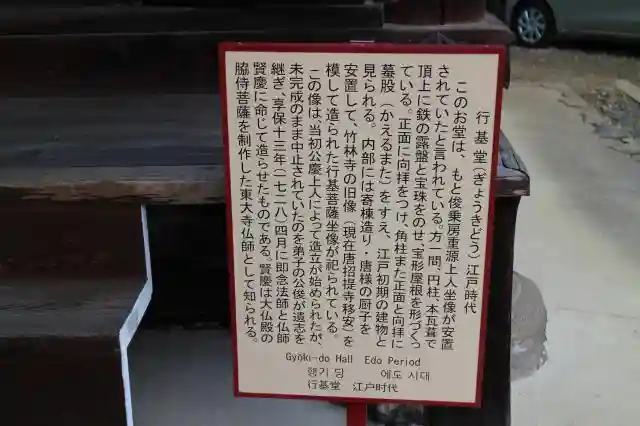 行基堂(ぎょうきどう)江戸時代
このお堂は、もと俊乗房重源上人坐像が安置
されていたと言われている。方一間、円柱、本瓦葺で
頂上に鉄の露盤と宝珠をのせ、宝形屋根を形づくっ
ている。正面に向拝をつけ、角柱また正面と向拝に
蟇股(かえるまた)をすえ、江戸初期の建物と
見られる。内部には寄棟造り・唐様の厨子を
安置して、竹林寺の旧像(現在唐招提寺移安)を
模して造られた行基菩薩坐像が祀られている。
この像は、当初公慶上人によって造立が始められたが、
未完成のまま中止されていたのを弟子の公俊が遺志を
継ぎ、享保十三年(一七二八)四月に即念法師と仏師
賢慶に命じて造らせたものである。賢慶は大仏殿の
脇侍菩薩を制作した東大寺仏師として知られる。
Gyōki-do Hall Edo Period
행기 당 에도 시대
行基堂 江户时代